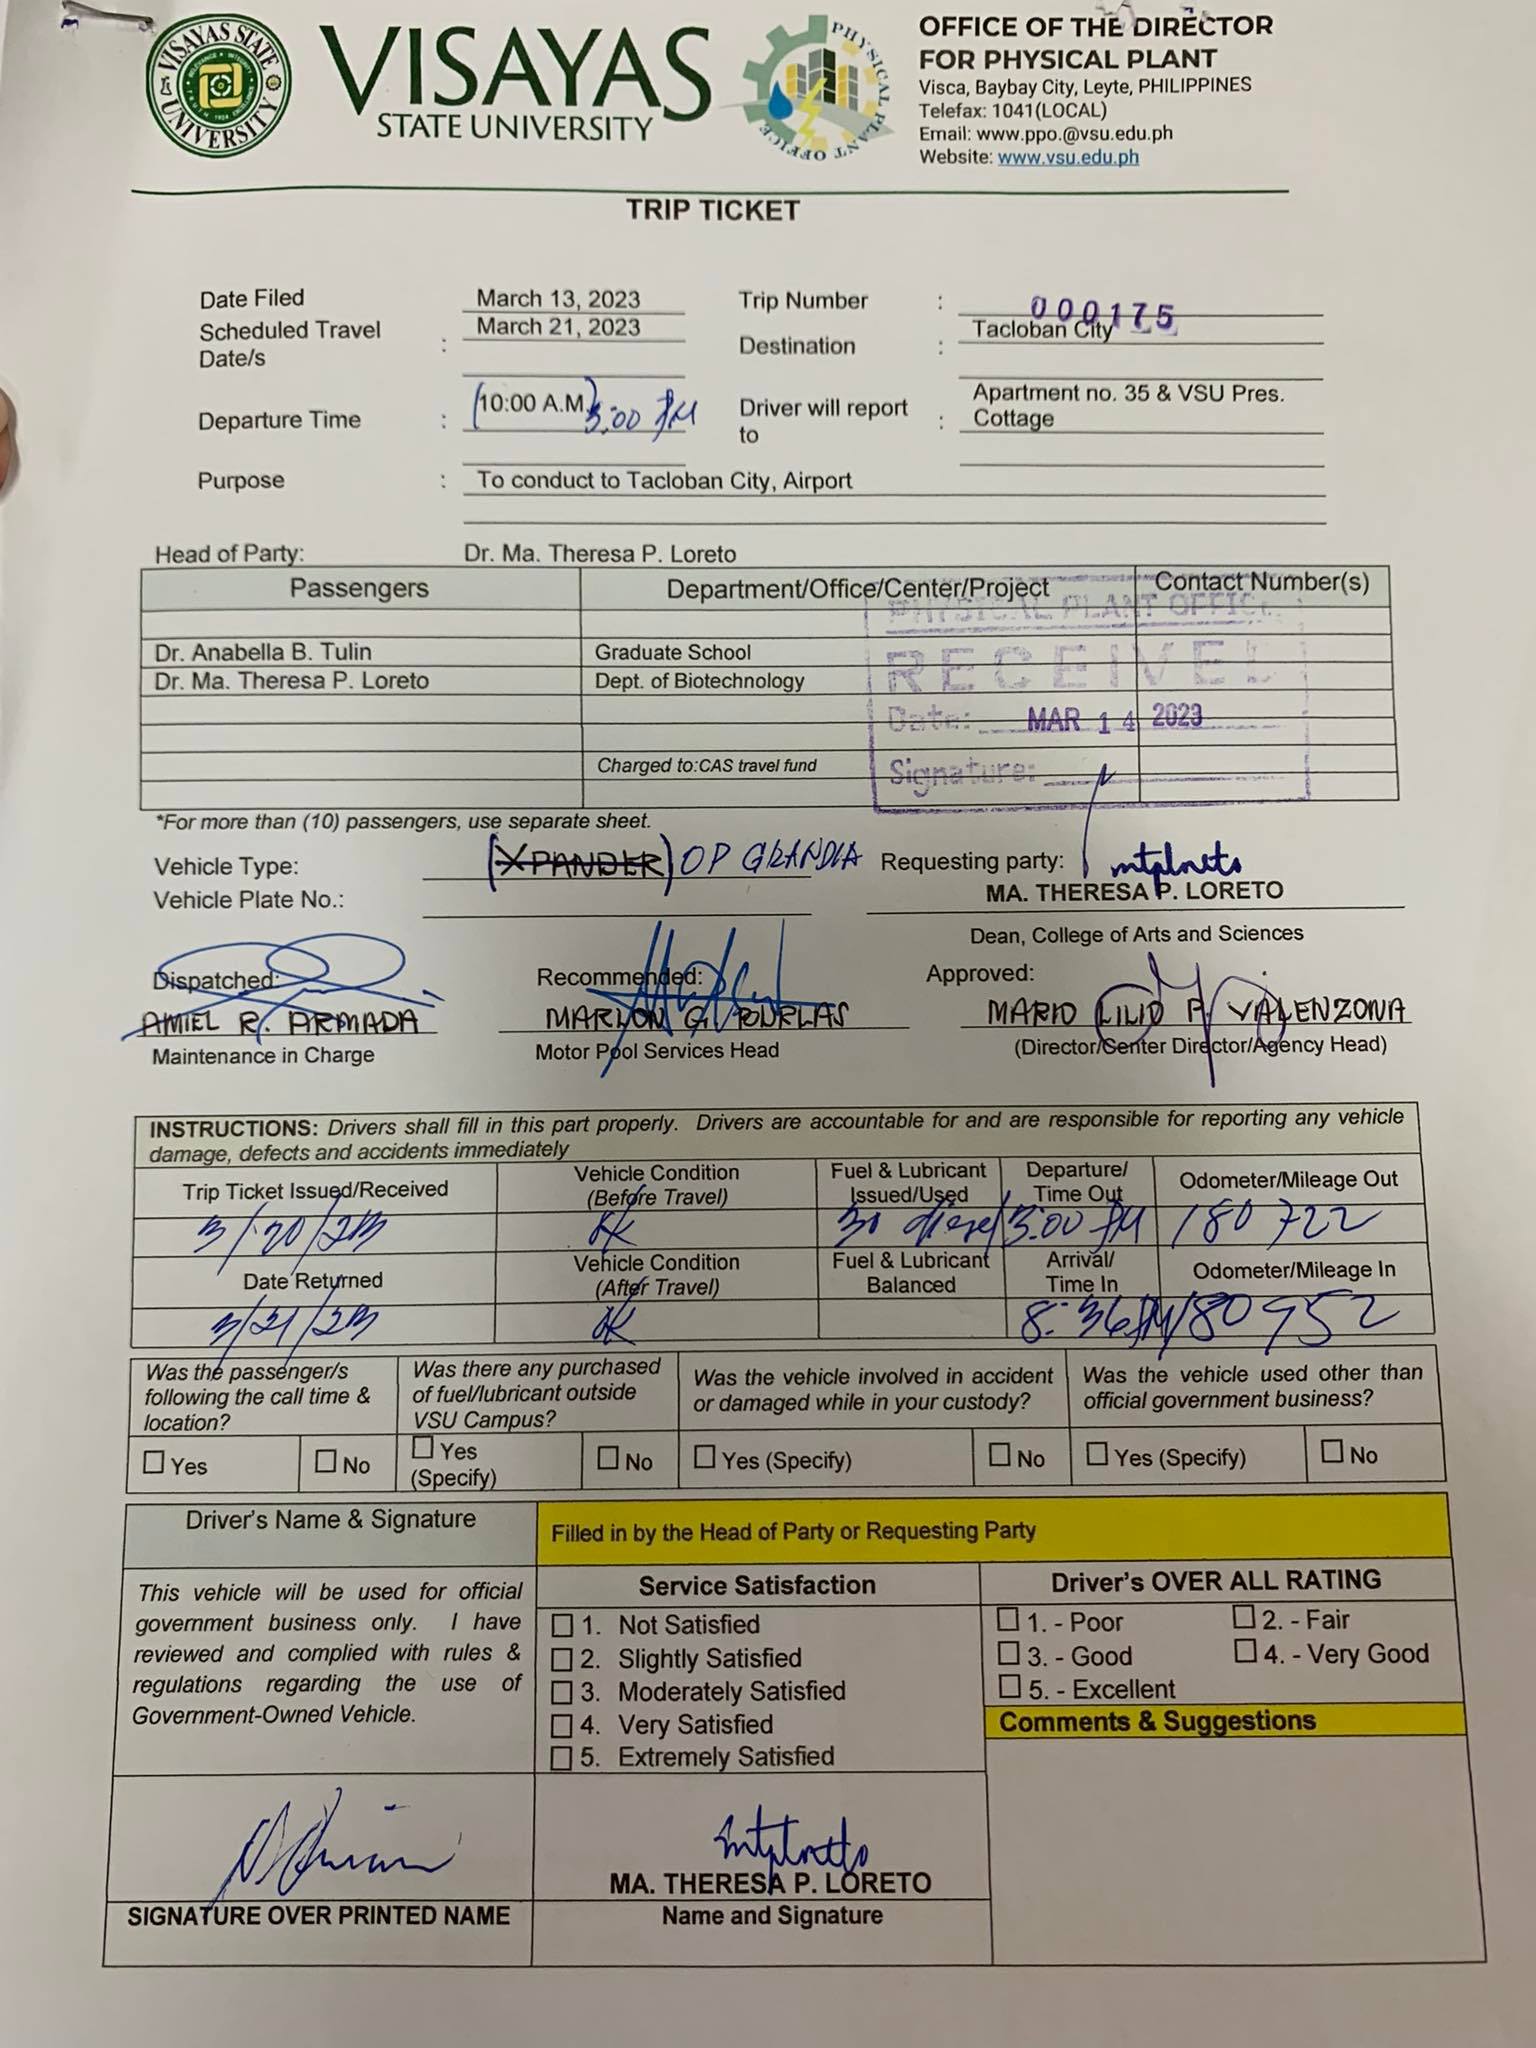 VISAYAS STATE UNIVERSITY
VISAYAS
STATE UNIVERSITY
PHYSICAL PLANT OFFICE
OFFICE OF THE DIRECTOR
FOR PHYSICAL PLANT
Visca, Baybay City, Leyte, PHILIPPINES
Telefax: 1041(LOCAL)
Email: www.ppo.@vsu.edu.ph
Website: www.vsu.edu.ph
TRIP TICKET
Date Filed March 13, 2023 Trip Number : 000175
Scheduled Travel Date/s : March 21, 2023 Destination : Tacloban City
Departure Time : (10:00 A.M.) 3:00 PM Driver will report to : Apartment no. 35 & VSU Pres. Cottage
Purpose : To conduct to Tacloban City, Airport
Head of Party: Dr. Ma. Theresa P. Loreto
Passengers Department/Office/Center/Project Contact Number(s)
Dr. Anabella B. Tulin Graduate School
Dr. Ma. Theresa P. Loreto Dept. of Biotechnology
Charged to:CAS travel fund
PHYSICAL PLANT OFFICE
RECEIVED
Date: MAR 14 2023
Signature:
*For more than (10) passengers, use separate sheet.
Vehicle Type: (XPANDER) OP GRANDIA Requesting party: mtploreto
Vehicle Plate No.: MA. THERESA P. LORETO
Dean, College of Arts and Sciences
Dispatched: Recommended: Approved:
AMIEL R. ARMADA MARLON G. BURLAS MARIO LILIO P. VALENZONA
Maintenance in Charge Motor Pool Services Head (Director/Center Director/Agency Head)
INSTRUCTIONS: Drivers shall fill in this part properly. Drivers are accountable for and are responsible for reporting any vehicle
damage, defects and accidents immediately
Trip Ticket Issued/Received Vehicle Condition (Before Travel) Fuel & Lubricant Issued/Used Departure/ Time Out Odometer/Mileage Out
3/20/23 OK 30 diesel 3:00 PM 180722
Date Returned Vehicle Condition (After Travel) Fuel & Lubricant Balanced Arrival/ Time In Odometer/Mileage In
3/21/23 OK 8:36 PM 180952
Was the passenger/s following the call time & location?
Was there any purchased of fuel/lubricant outside VSU Campus?
Was the vehicle involved in accident or damaged while in your custody?
Was the vehicle used other than official government business?
Yes No Yes (Specify) No Yes (Specify) No Yes (Specify) No
Driver's Name & Signature Filled in by the Head of Party or Requesting Party
This vehicle will be used for official
government business only. I have
reviewed and complied with rules &
regulations regarding the use of
Government-Owned Vehicle.
Service Satisfaction
1. Not Satisfied
2. Slightly Satisfied
3. Moderately Satisfied
4. Very Satisfied
5. Extremely Satisfied
Driver's OVER ALL RATING
1. - Poor 2. - Fair
3. - Good 4. - Very Good
5. - Excellent
Comments & Suggestions
mtploreto
MA. THERESA P. LORETO
SIGNATURE OVER PRINTED NAME Name and Signature